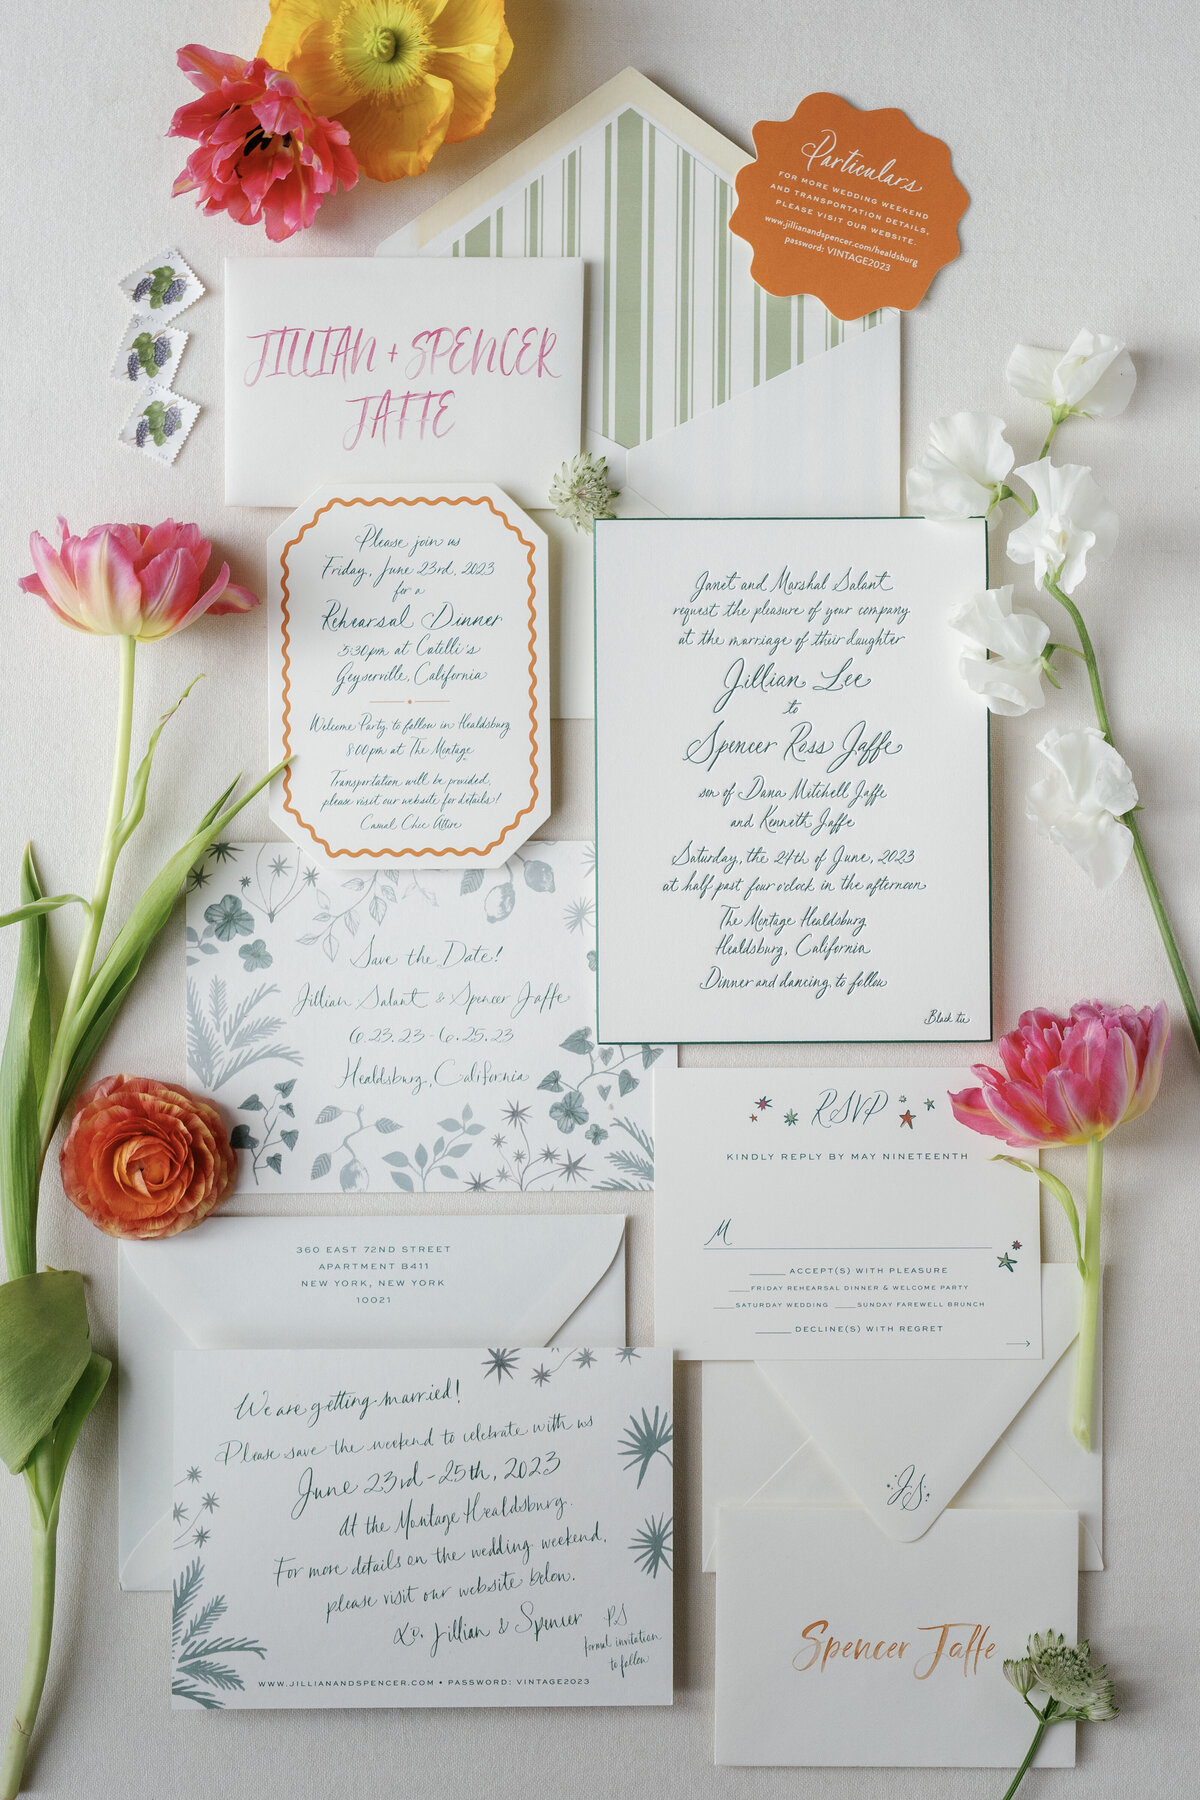 Particulars
FOR MORE WEDDING WEEKEND
AND TRANSPORTATION DETAILS,
PLEASE VISIT OUR WEBSITE.
www.jillianandspencer.com/healdsburg
password: VINTAGE2023
JILLIAN + SPENCER
JAFFE
Please join us
Friday, June 23rd, 2023
for a
Rehearsal Dinner
5:30pm at Catelli's
Geyserville, California
Welcome Party to follow in Healdsburg
8:00pm at The Montage
Transportation will be provided,
please visit our website for details!
Casual Chic Attire
Janet and Marshal Salant
request the pleasure of your company
at the marriage of their daughter
Jillian Lee
to
Spencer Ross Jaffe
son of Dana Mitchell Jaffe
and Kenneth Jaffe
Saturday, the 24th of June, 2023
at half past four o'clock in the afternoon
The Montage Healdsburg
Healdsburg, California
Dinner and dancing to follow
Black tie
Save the Date!
Jillian Salant & Spencer Jaffe
6.23.23-6.25.23
Healdsburg, California
RSVP
KINDLY REPLY BY MAY NINETEENTH
M
ACCEPT(S) WITH PLEASURE
FRIDAY REHEARSAL DINNER & WELCOME PARTY
SATURDAY WEDDING SUNDAY FAREWELL BRUNCH
DECLINE(S) WITH REGRET
360 EAST 72ND STREET
APARTMENT B411
NEW YORK, NEW YORK
10021
We are getting married!
Please save the weekend to celebrate with us
June 23rd-25th, 2023
At the Montage Healdsburg.
For more details on the wedding weekend,
please visit our website below.
xo, Jillian & Spencer
PS
formal invitation
to follow
WWW.JILLIANANDSPENCER.COM • PASSWORD: VINTAGE2023
JS
Spencer Jaffe